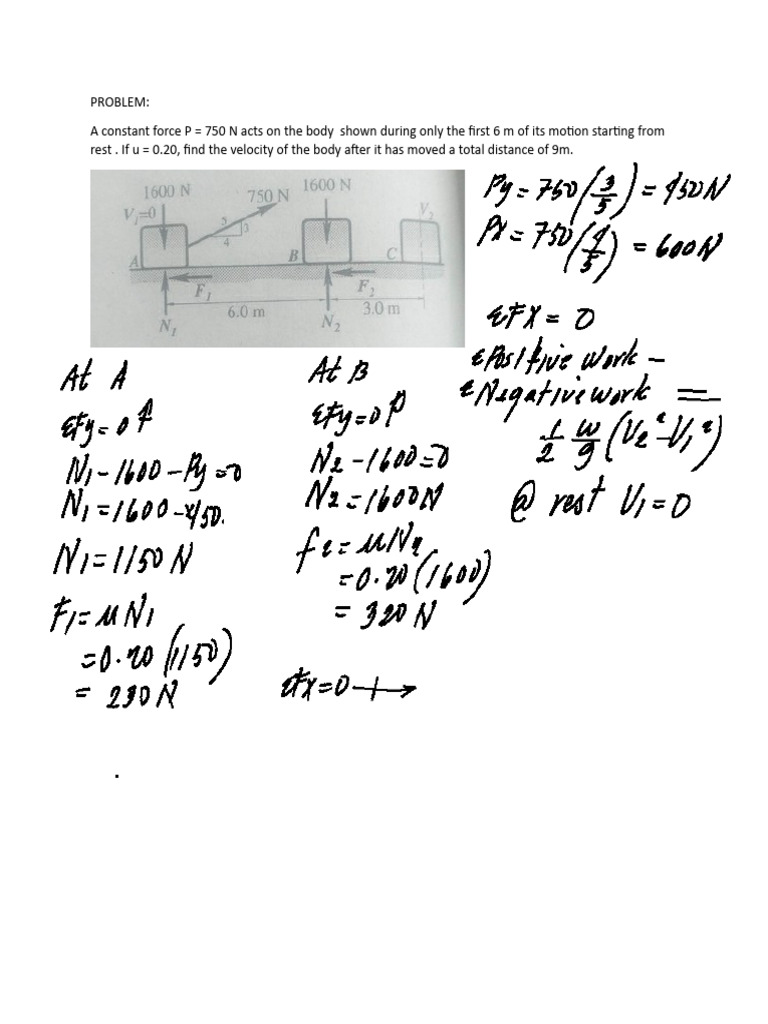 PROBLEM:
A constant force P = 750 N acts on the body shown during only the first 6 m of its motion starting from
rest . If u = 0.20, find the velocity of the body after it has moved a total distance of 9m.
1600 N
750 N
1600 N
V₁=0
V₂
5
3
4
A
B
C
F₁
F₂
6.0 m
3.0 m
N₁
N₂
Py = 750 (3/5) = 450N
Px = 750 (4/5) = 600N
ΣFX = 0
ΣPositive work -
ΣNegative work =
1/2 W/g (V₂² - V₁²)
@ rest V₁ = 0
At A
ΣFy = 0
N₁ - 1600 - Py = 0
N₁ = 1600 - 450.
N₁ = 1150 N
F₁ = μN₁
= 0.20 (1150)
= 230 N
At B
ΣFy = 0
N₂ - 1600 = 0
N₂ = 1600N
f₂ = μN₂
= 0.20 (1600)
= 320 N
ΣFx = 0 +→
.